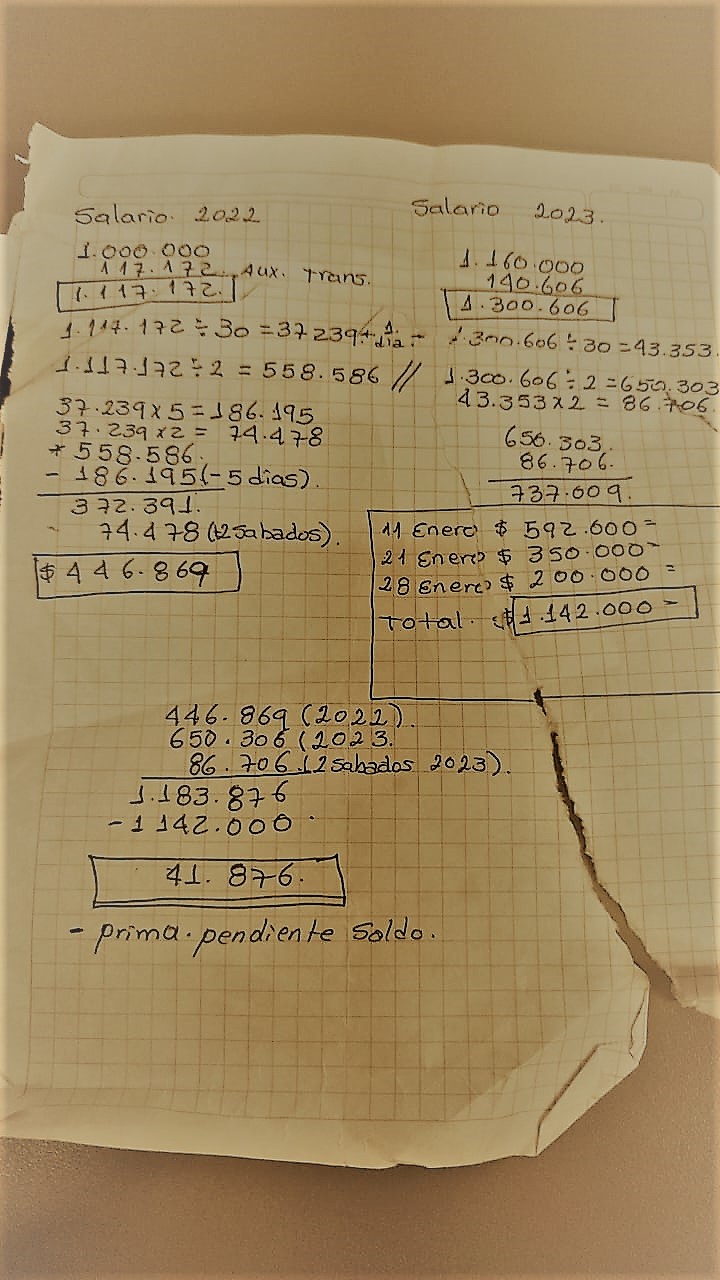 Salario. 2022
1.000.000
117.172 Aux. Trans.
1.117.172.
1.117.172 ÷ 30 = 37239 1 dia.
1.117.172 ÷ 2 = 558.586 //
37.239 x 5 = 186.195
37.239 x 2 = 74.478
+ 558.586.
- 186.195 (-5 dias).
372.391.
74.478 (+2 Sabados).
$ 446.869
Salario 2023.
1.160.000
140.606
1.300.606
1.300.606 ÷ 30 = 43.353.
1.300.606 ÷ 2 = 650.303
43.353 x 2 = 86.706.
650.303.
86.706.
737.009.
11 Enero $ 592.600=
21 Enero $ 350.000=
28 Enero $ 200.000=
Total. $ 1.142.000=
446.869 (2022).
650.306 (2023.
86.706 (2 Sabados 2023).
1.183.876
- 1 142.000
41.876.
- prima. pendiente Soldo.